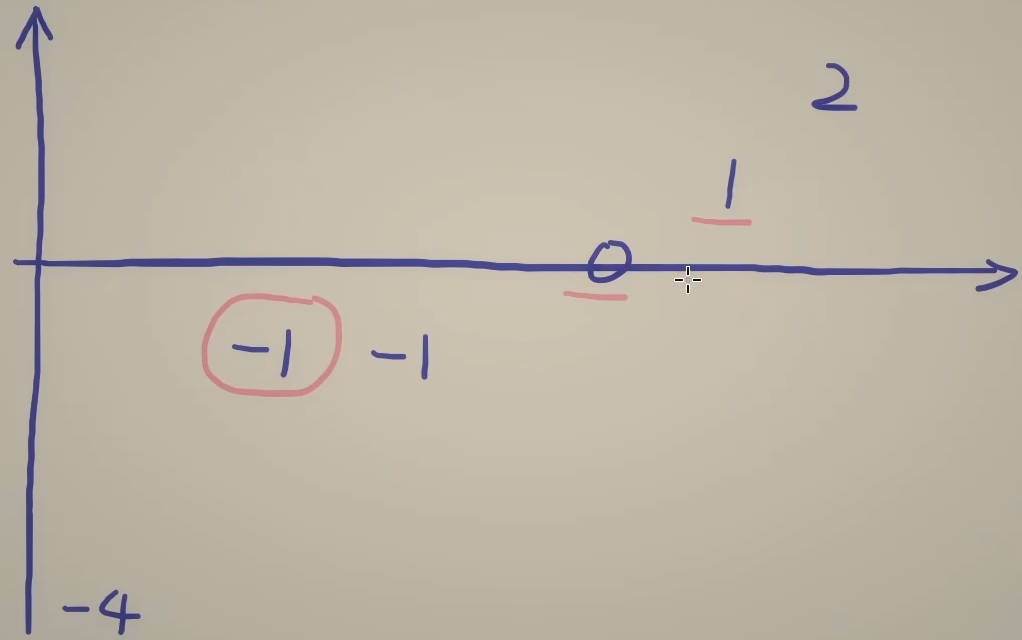 2
1
0
-1 -1
-4